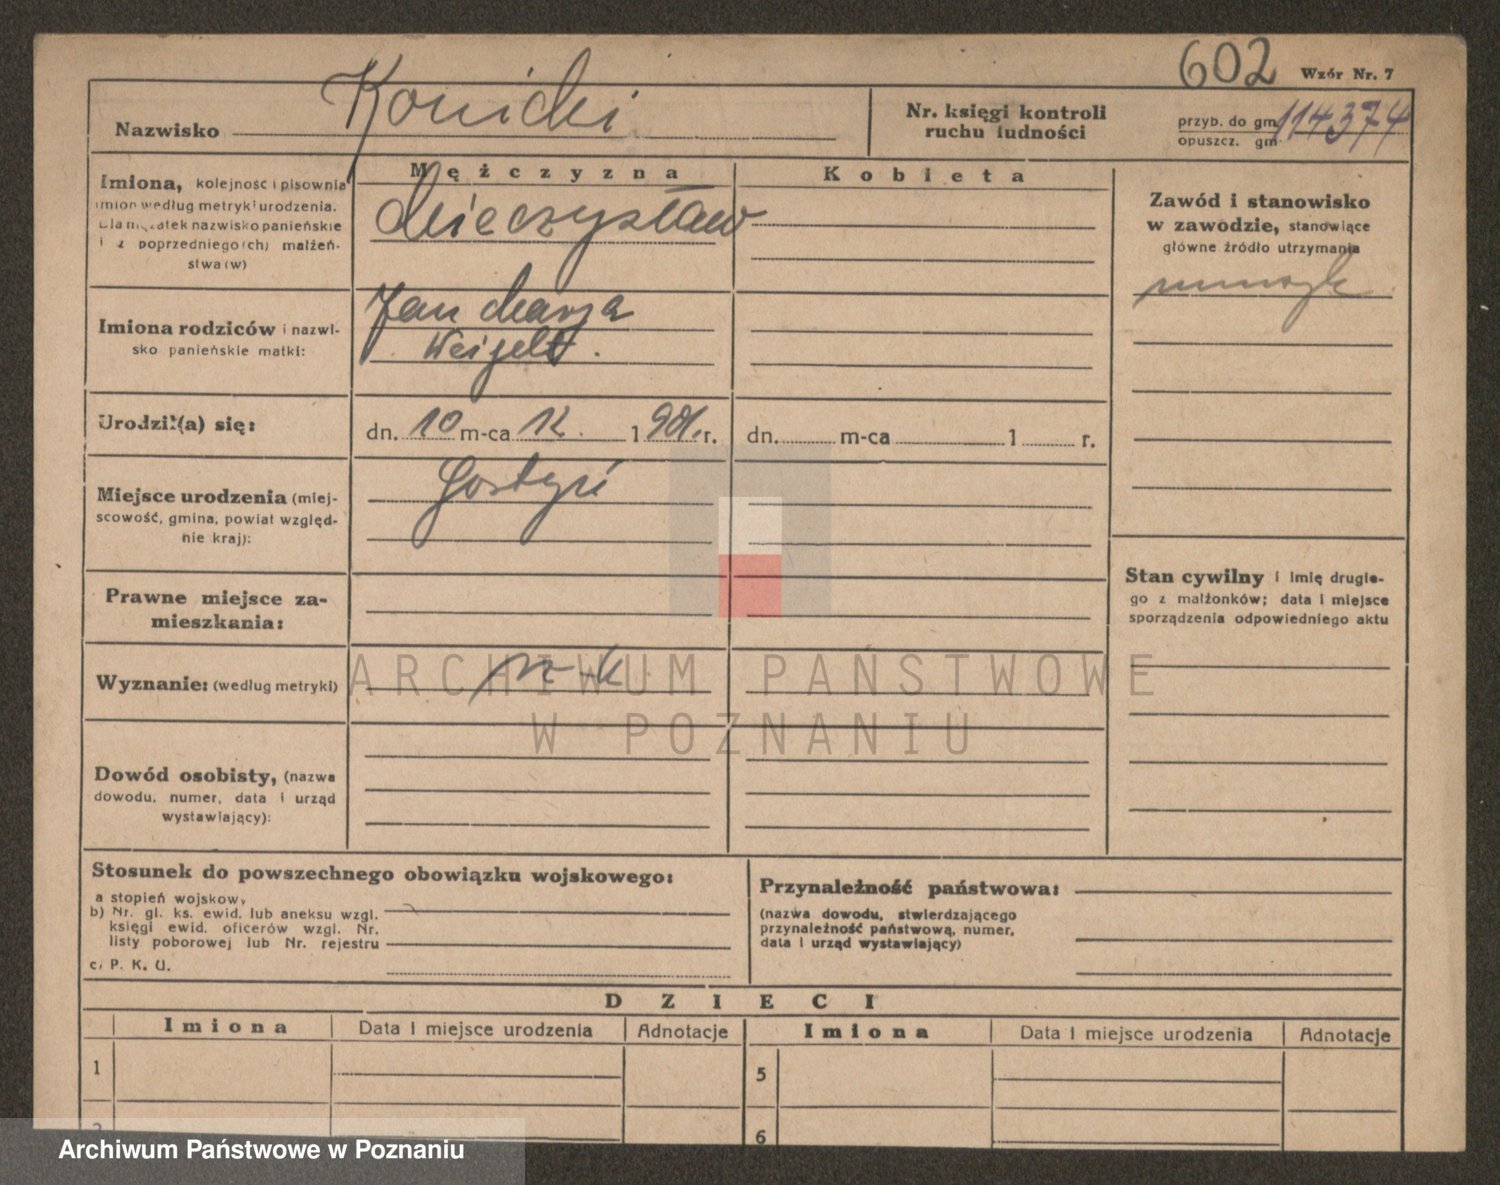 602 Wzór Nr. 7
Nazwisko Konicki
Nr. księgi kontroli
ruchu ludności
przyb. do gm. 114374
opuszcz. gm.
Mężczyzna
Kobieta
Imiona, kolejność i pisownia
imion według metryki urodzenia.
Dla mężatek nazwisko panieńskie
i z poprzedniego(ch) małżeń-
stwa(w)
Mieczysław
Zawód i stanowisko
w zawodzie, stanowiące
główne źródło utrzymania
muzyk
Imiona rodziców i nazwi-
sko panieńskie matki:
Jan Marja
Weigelt.
Urodził(a) się:
dn. 10 m-ca 12. 1901. r.
dn. m-ca 1 r.
Miejsce urodzenia (miej-
scowość, gmina, powiat względ-
nie kraj):
Gostyń
Prawne miejsce za-
mieszkania:
Stan cywilny i imię drugie-
go z małżonków; data i miejsce
sporządzenia odpowiedniego aktu
Wyznanie: (według metryki)
r-k
Dowód osobisty, (nazwa
dowodu, numer, data i urząd
wystawiający):
ARCHIWUM PAŃSTWOWE
W POZNANIU
Stosunek do powszechnego obowiązku wojskowego:
a stopień wojskow,
b) Nr. gl. ks. ewid. lub aneksu wzgl.
księgi ewid. oficerów wzgl. Nr.
listy poborowej lub Nr. rejestru
c, P. K. U.
Przynależność państwowa:
(nazwa dowodu, stwierdzającego
przynależność państwową, numer,
data i urząd wystawiający)
DZIECI
Imiona Data i miejsce urodzenia Adnotacje Imiona Data i miejsce urodzenia Adnotacje
1 5
2 6
Archiwum Państwowe w Poznaniu